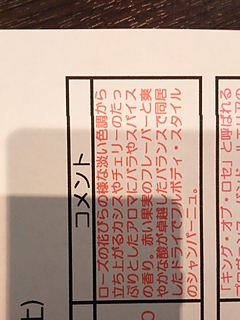 コメント
ローズの花びらの様な淡い色調から
立ち上がるカシスやチェリーのたっ
ぷりとしたアロマにバラやスパイス
の香り。赤い果実のフレーバーと爽
やかな酸が卓越したバランスで同居
したドライでフルボディ・スタイル
のシャンパーニュ。
「キング・オブ・ロゼ」と呼ばれる